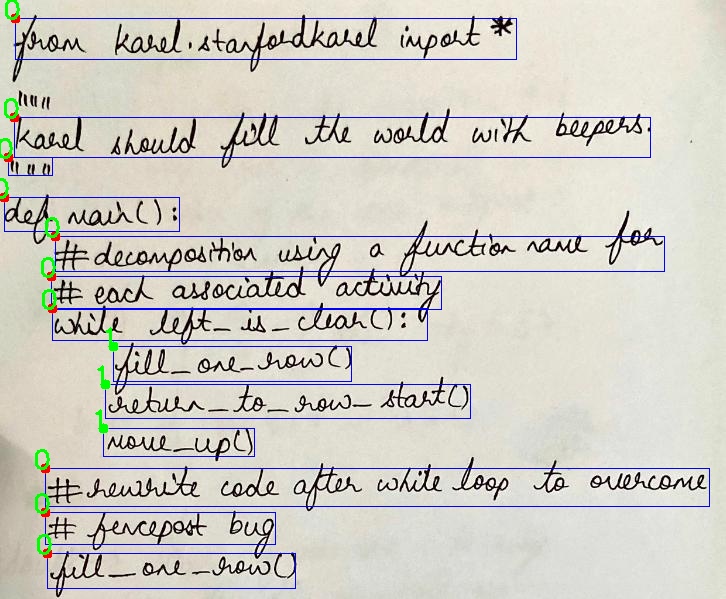 from karel.stanfordkarel import *
"""
Karel should fill the world with beepers.
"""
def main():
# decomposition using a function name for
# each associated activity
while left_is_clear():
fill_one_row()
return_to_row_start()
move_up()
# rewrite code after while loop to overcome
# fencepost bug
fill_one_row()